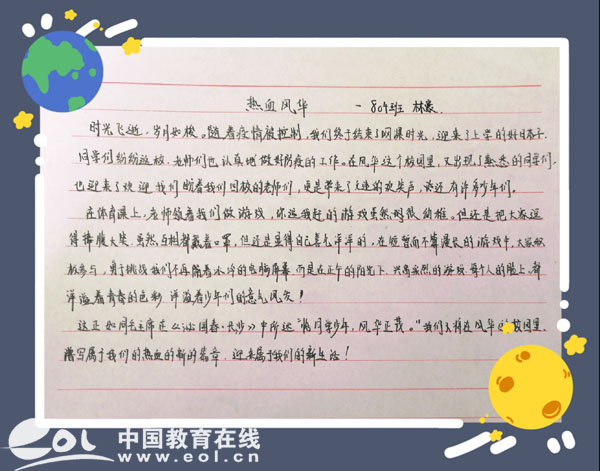 热血风华 —809班 林晨
时光飞逝，岁月如梭。随着疫情被控制，我们终于结束了网课时光，迎来了上学的好日子。
同学们纷纷返校，老师们也认真地做好防疫的工作。在风华这个校园里，又出现了熟悉的同学们，
也迎来了欢迎我们盼着我们回校的老师们，更是带来了久违的欢笑声，欢迎有许多少年们。
在体育课上，老师领着我们做游戏，你追我赶的游戏虽然对很幼稚。但还是把大家逗
得捧腹大笑。虽然互相都戴着口罩，但还是显得自己意气洋洋的，在短暂而不算漫长的游戏中，大家积
极参与，勇于挑战我们不再隔着冰冷的电脑屏幕，而是在正午的阳光下，兴高采烈的游戏每个人的脸上，都
洋溢着青春的色彩，洋溢着少年们的意气风发！
这正如同毛主席在《沁园春·长沙》中所述“恰同学少年，风华正茂。”我们也将在风华的校园里，
谱写属于我们的热血的新的篇章，迎来属于我们的新生活！
eol 中国教育在线
www.eol.cn